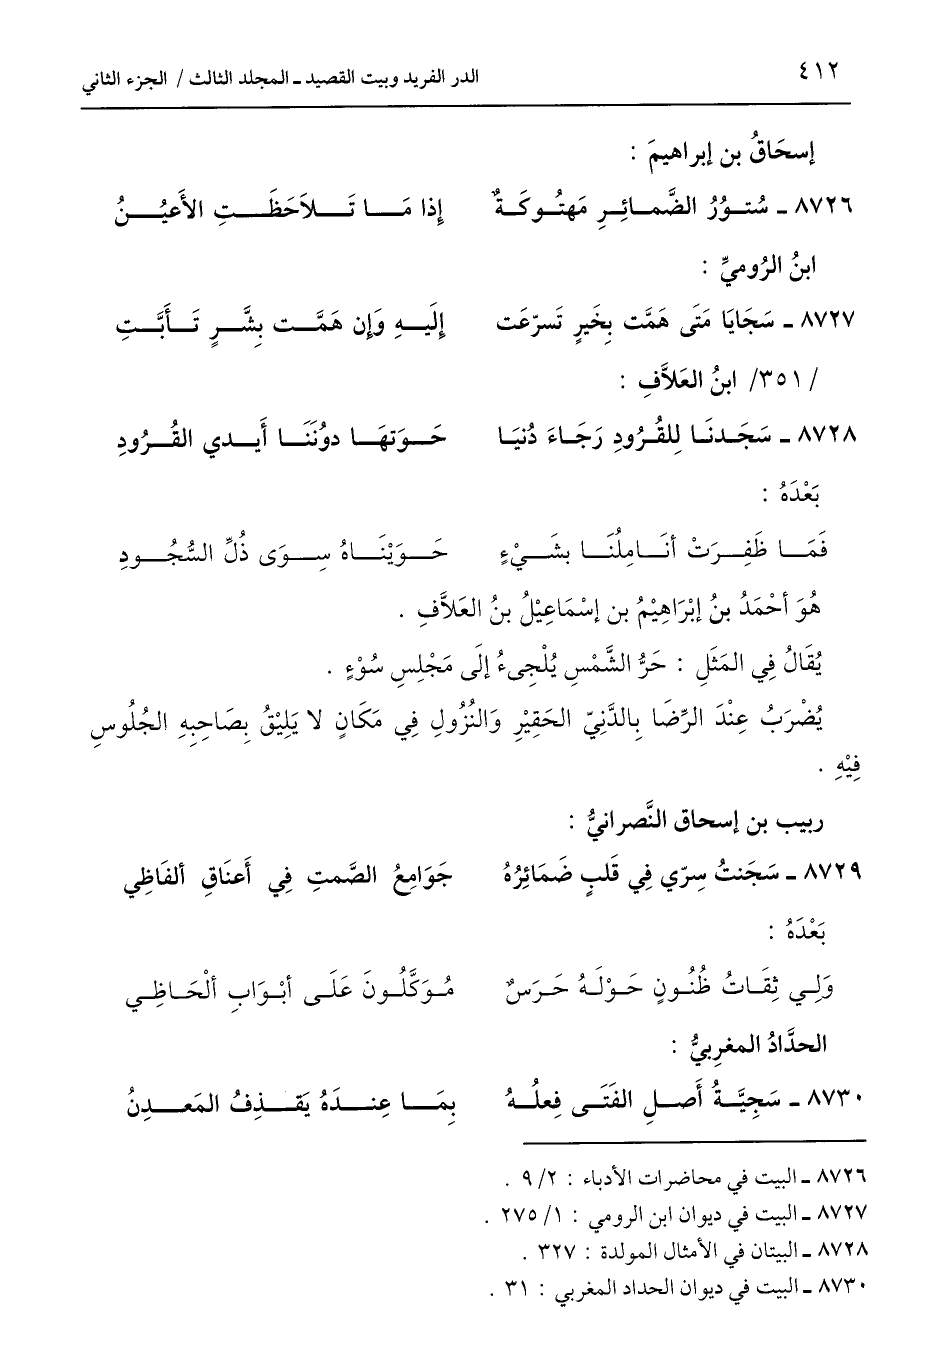 ٤١٢ الدر الفريد وبيت القصيد ـ المجلد الثالث / الجزء الثاني
إسحَاقُ بن إبراهيمَ :
٨٧٢٦ ـ سُتورُ الضَّمائرِ مَهتُوكَةٌ إذا مَا تَلاَحَظَتِ الأَعيُنُ
ابنُ الرُوميِّ :
٨٧٢٧ ـ سَجَايَا مَتَى هَمَّت بِخَيرٍ تَسرّعَت إِلَيهِ وَإِن هَمَّت بِشَّرٍ تَأبَّتِ
/ ٣٥١/ ابنُ العَلاَّفِ :
٨٧٢٨ ـ سَجَدنَا لِلقُرُودِ رَجَاءَ دُنيَا حَوَتهَا دونُنَا أَيدي القُرُودِ
بَعْدَهُ :
فَمَا ظَفِرَتْ أنَامِلُنَا بشَيْءٍ حَوَيْنَاهُ سِوَى ذُلِّ السُّجُودِ
هُوَ أحْمَدُ بنُ إبْرَاهِيْمُ بن إسْمَاعِيْلُ بنُ العَلاَّفِ .
يُقَالُ فِي المَثَلِ : حَرُّ الشَّمْسِ يُلْجِىءُ إلَى مَجْلِسِ سُوْءٍ .
يُضْرَبُ عِنْدَ الرِّضَا بِالدَّنِيّ الحَقِيْرِ وَالنُزُولِ فِي مَكَانٍ لا يَلِيْقُ بِصَاحِبِهِ الجُلُوسِ
فِيْهِ .
ربيب بن إسحاق النَّصرانيُّ :
٨٧٢٩ ـ سَجَنتُ سِرّي فِي قَلبٍ ضَمَائِرُهُ جَوَامِعُ الصَّمتِ فِي أَعنَاقِ ألفَاظِي
بَعْدَهُ :
وَلِي ثِقَاتُ ظُنُونٍ حَوْلَهُ حَرَسٌ مُوَكَّلُونَ عَلَى أبْوَابِ ألْحَاظِي
الحدَّادُ المغرِبيُّ :
٨٧٣٠ ـ سَجِيَّةُ أَصلِ الفَتَى فِعلُهُ بِمَا عِندَهُ يَقذِفُ المَعدِنُ
٨٧٢٦ ـ البيت في محاضرات الأدباء : ٢/ ٩ .
٨٧٢٧ ـ البيت في ديوان ابن الرومي : ١/ ٢٧٥ .
٨٧٢٨ ـ البيتان في الأمثال المولدة : ٣٢٧ .
٨٧٣٠ ـ البيت في ديوان الحداد المغربي : ٣١ .